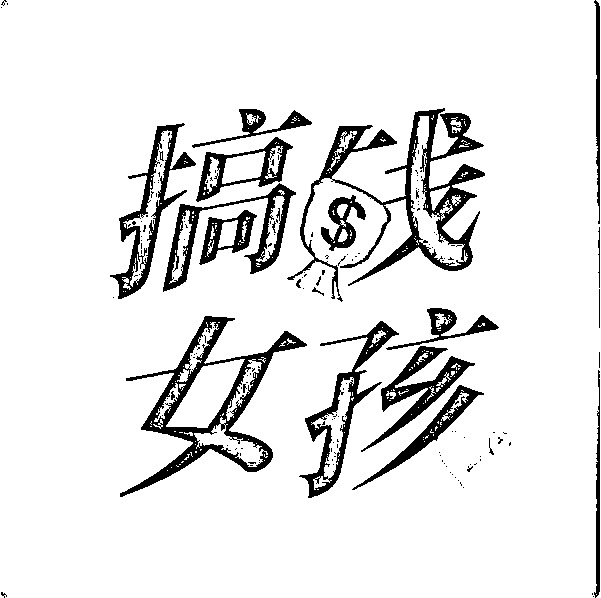 搞钱
女孩